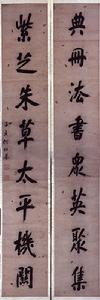 典冊法書衆英聚集
紫芝朱草太平機關